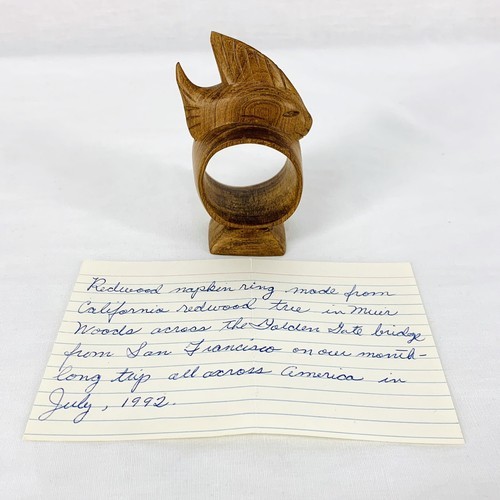 Redwood napken ring made from
California redwood tree in Muir
Woods across the Golden Gate bridge
from San Francisco on our month-
long trip all across America in
July, 1992.